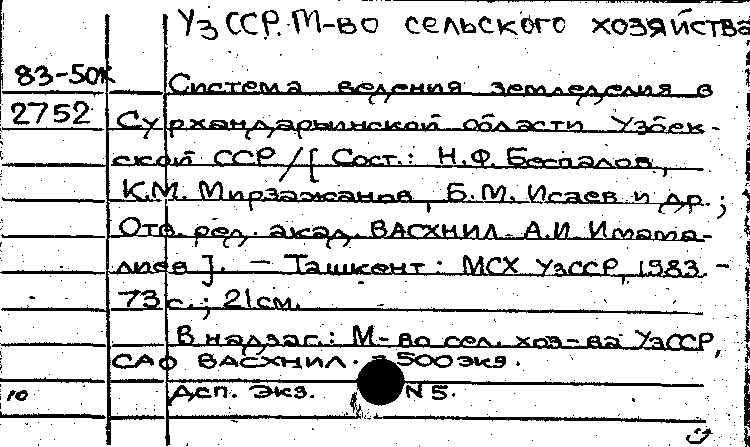 УзССР. М-во сельского хозяйства
83-50к
Система ведения земледелия в
2752
Сурхандарьинской области Узбек-
ской ССР / [ Сост.: Н.Ф. Беспалов,
К.М. Мирзажанов, Б.М. Исаев и др.;
Отв. ред. акад. ВАСХНИЛ А.И. Имама-
лиев ]. - Ташкент : МСХ УзССР, 1983. -
73 с. ; 21 см.
В надзаг.: М-во сел. хоз-ва УзССР,
САО ВАСХНИЛ. 500 экз.
10
Дсп. Экз. N 5.